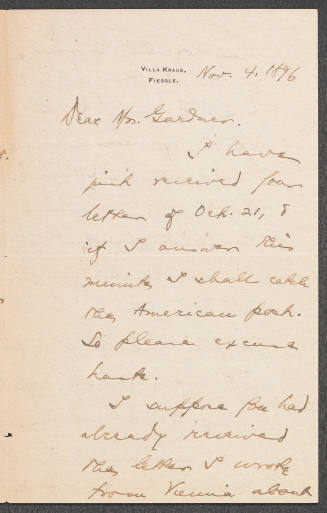 VILLA KRAUS,
FIESOLE.
Nov. 4, 1896
Dear Mrs. Gardner.
I have
just received your
letter of Oct. 21, &
if I answer this
minute I shall catch
the American post.
So please excuse
haste.
I suppose you had
already received
the letter I wrote
from Vienna about